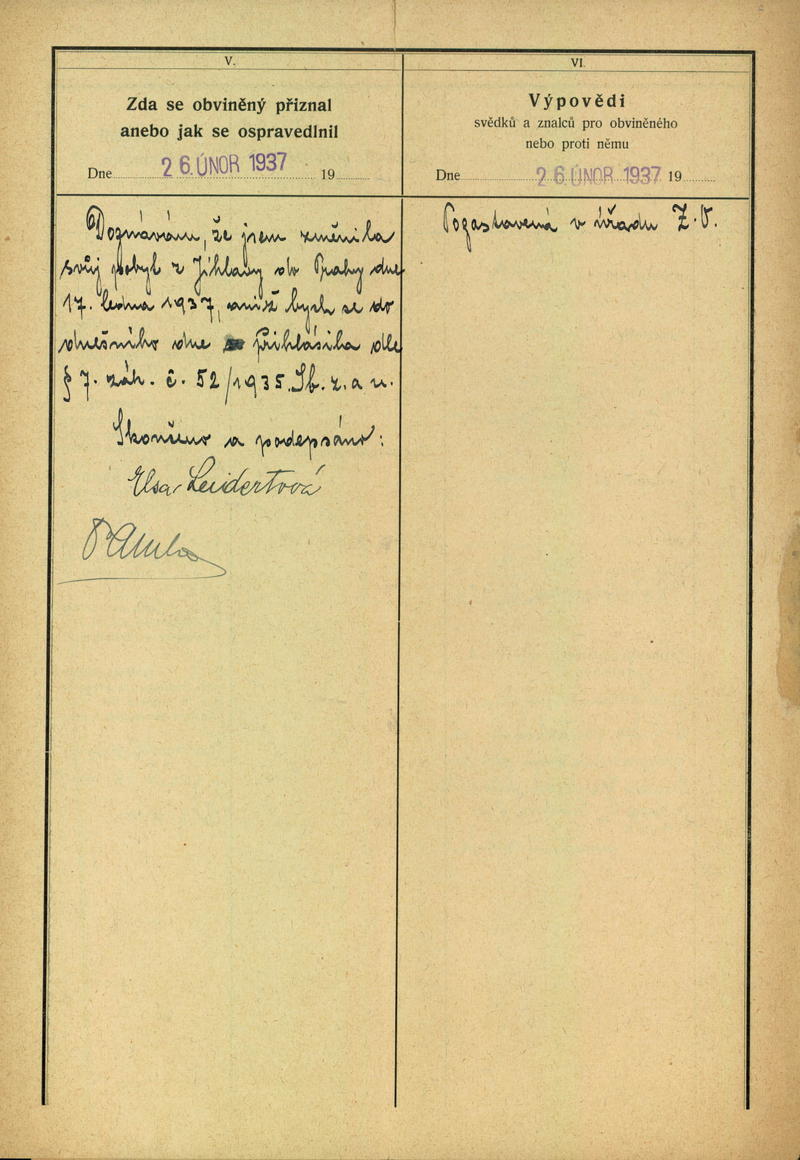 V.
Zda se obviněný přiznal
anebo jak se ospravedlnil
Dne 26. ÚNOR 1937 19
Doznávám, že jsem změnila
svůj pobyt z Jihlavy do Prahy dne
17. ledna 1937, aniž bych se do
dnešního dne přihlásila dle
§ 7. zák. č. 52/1935. Sb. z. a n.
Skončeno a podepsáno:
Elsa Leidertová
VI.
Výpovědi
svědků a znalců pro obviněného
nebo proti němu
Dne 26. ÚNOR 1937 19
v úřadu